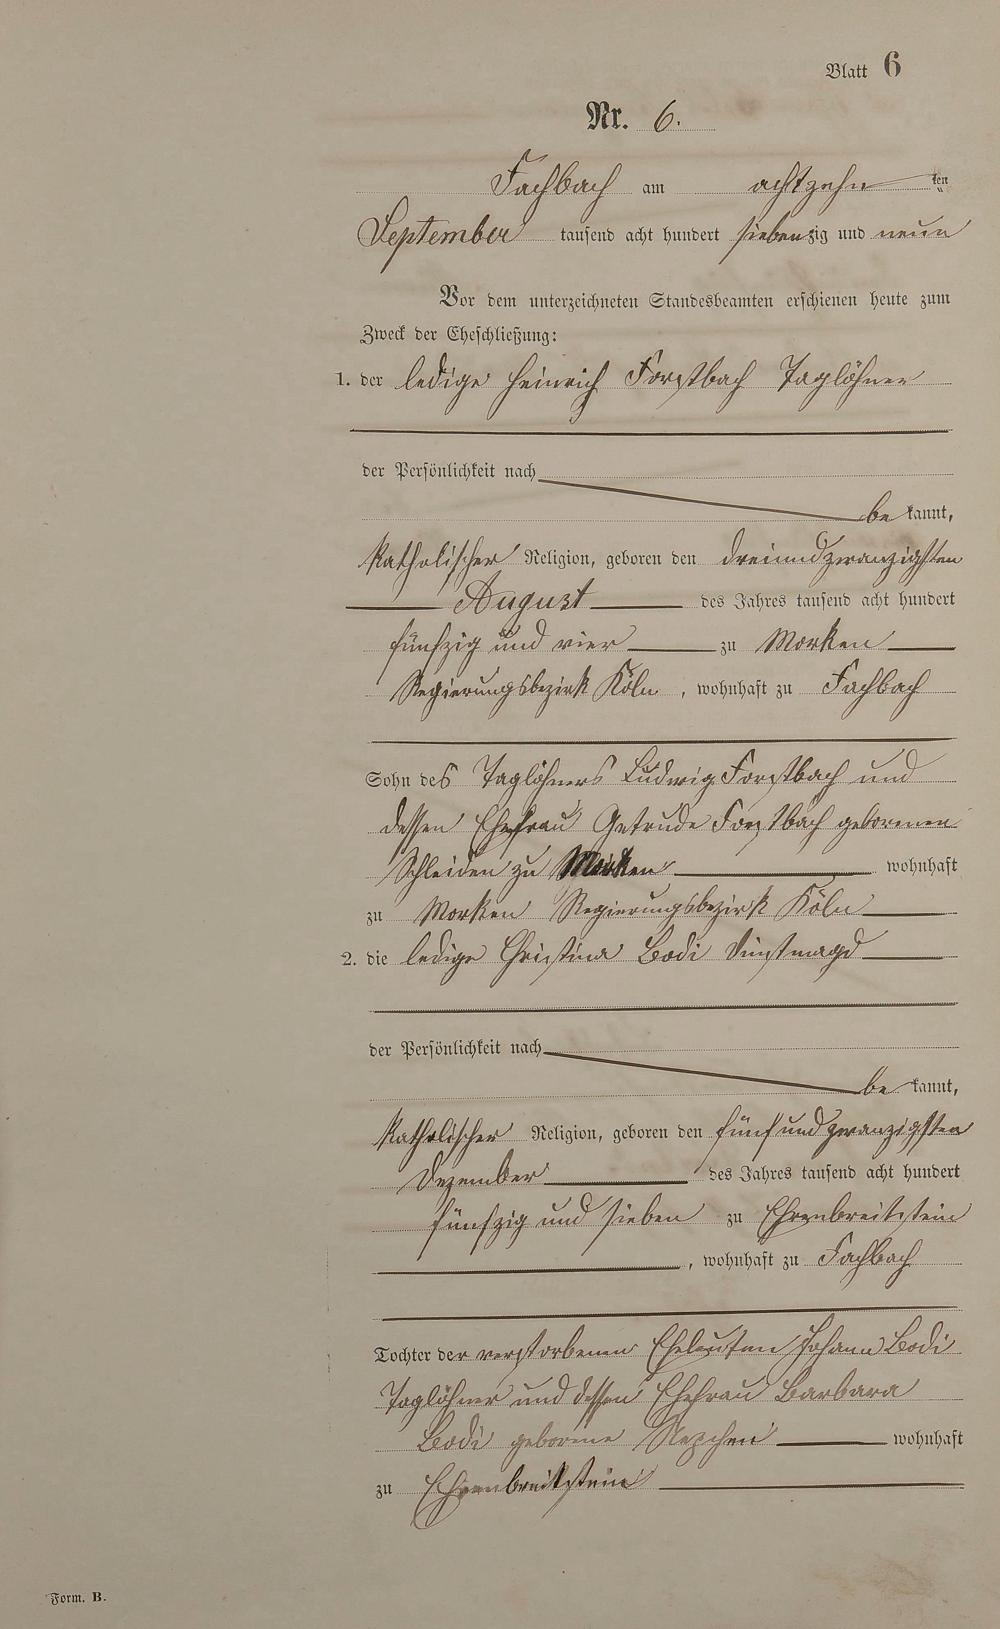 Blatt 6
Nr. 6.
Fachbach am achtzehn ten
September tausend acht hundert siebenzig und neun
Vor dem unterzeichneten Standesbeamten erschienen heute zum
Zweck der Eheschließung:
1. der ledige Heinrich Forstbach Taglöhner
der Persönlichkeit nach
be kannt,
katholischer Religion, geboren den dreiundzwanzigsten
August des Jahres tausend acht hundert
fünfzig und vier zu Morken
Regierungsbezirk Köln, wohnhaft zu Fachbach
Sohn des Taglöhners Ludwig Forstbach und
dessen Ehefrau Getrude Forstbach geborenen
Schleiden zu Morken wohnhaft
zu Morken Regierungsbezirk Köln
2. die ledige Christina Bodi Dinstmagd
der Persönlichkeit nach
be kannt,
katholischer Religion, geboren den fünfundzwanzigsten
Dezember des Jahres tausend acht hundert
fünfzig und sieben zu Ehrenbreitstein
, wohnhaft zu Fachbach
Tochter der verstorbenen Eheleuten Johann Bodi
Taglöhner und dessen Ehefrau Barbara
Bodi geborene wohnhaft
zu Ehrenbreitstein
Form. B.